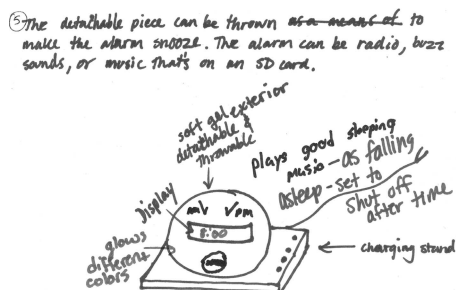 ⑤ The detachable piece can be thrown as a means of to
make the alarm snooze. The alarm can be radio, buzz
sounds, or music that's on an SD card.
soft gel exterior
detachable &
throwable
plays good sleeping
music - as falling
asleep - set to
shut off
after time
Display
am pm
8:00
glows
different
colors
charging stand